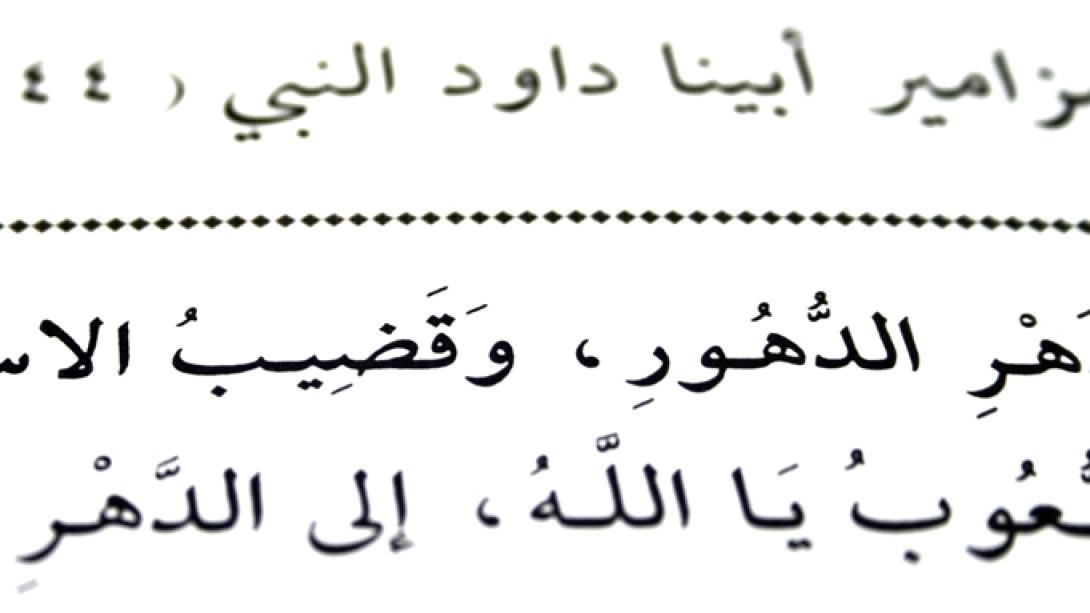 مزامير أبينا داود النبي ( ٤٤
دَهْرِ الدُّهُورِ ، وَقَضِيبُ الاس
ـعُوبُ يَا اللَّهُ ، إلى الدَّهْرِ